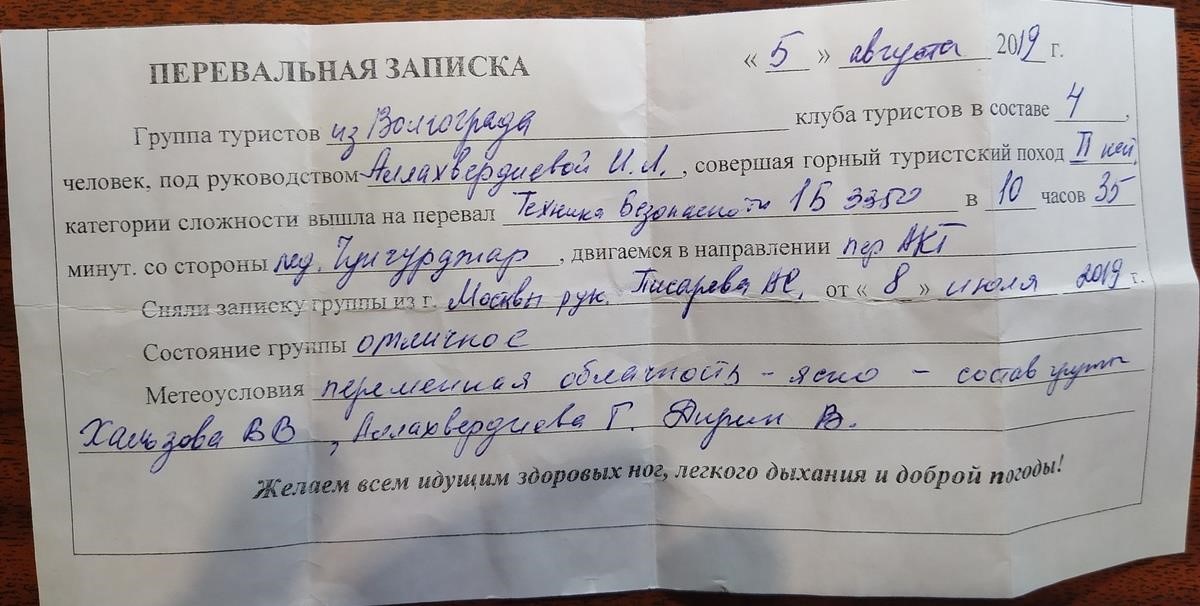 ПЕРЕВАЛЬНАЯ ЗАПИСКА « 5 » августа 2019 г.
Группа туристов из Волгограда клуба туристов в составе 4,
человек, под руководством Аллахвердиевой И.Л., совершая горный туристский поход II ной
категории сложности вышла на перевал Техника Безопасности 1Б 3350 в 10 часов 35
минут. со стороны лед. Чунгурджар, двигаемся в направлении пер АКТ
Сняли записку группы из г. Москвы рук. Писарева АС. от « 8 » июля 2019 г.
Состояние группы отличное
Метеоусловия переменная облачность – ясно – состав группы
Хальзова ВВ, Аллахвердиева Г. Дирин В.
Желаем всем идущим здоровых ног, легкого дыхания и доброй погоды!